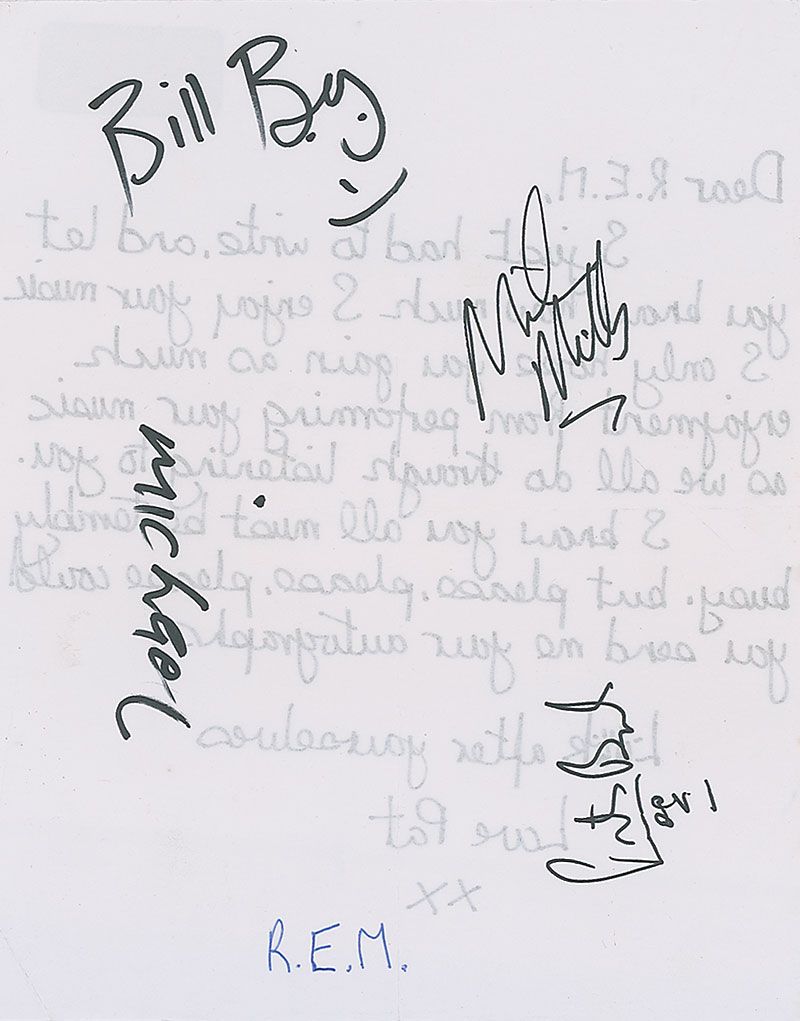 Bill B
Dear R.E.M.,
I just had to write, and let
you know how much I enjoy your music
I only hope you gain as much
enjoyment from performing your music
as we all do through listening to you.
I know you all must be terribly
busy, but please, please, please could
you send me your autographs
Look after yourselves
Love Pat
xx
Mike Mills
michael
R.E.M.